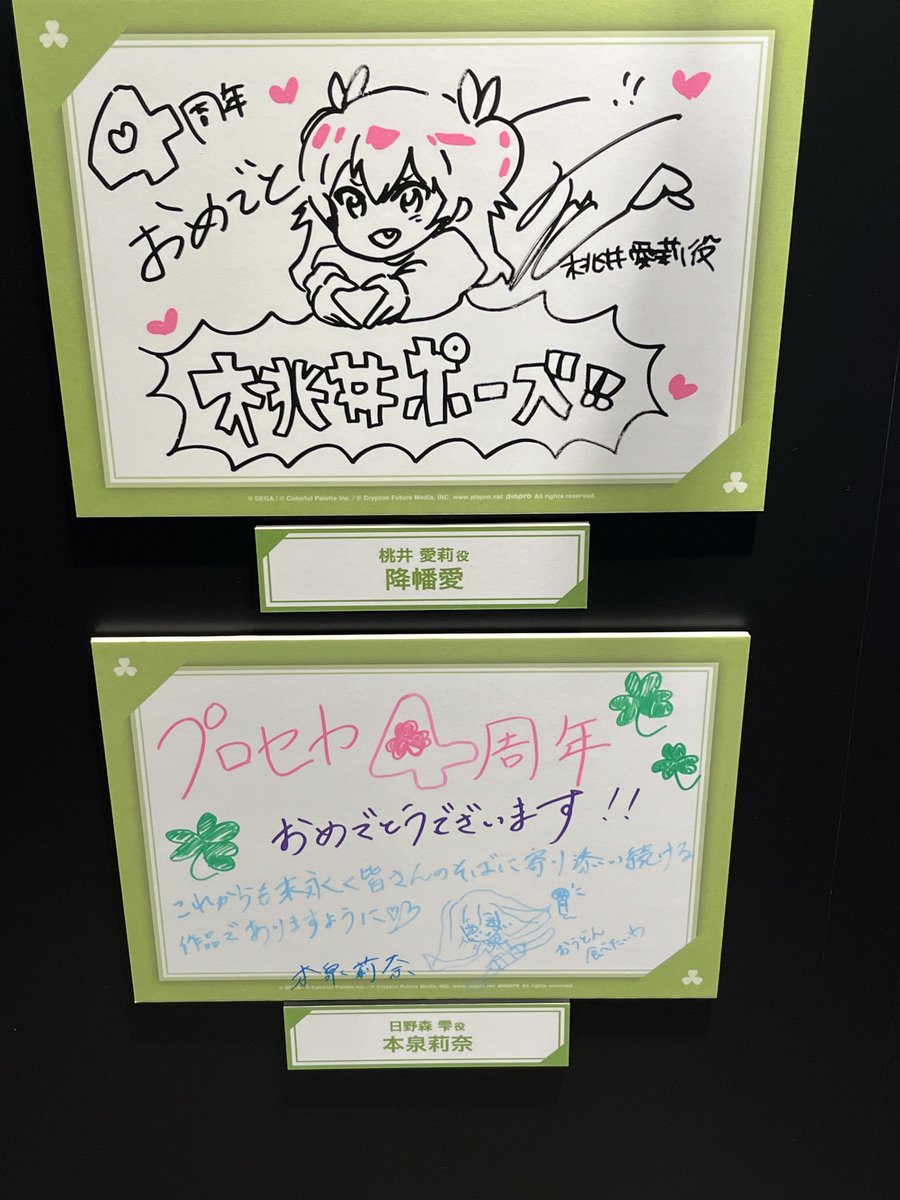 4周年
おめでと
!!
桃井愛莉役
桃井ポーズ!!
© SEGA / © Colorful Palette Inc. / © Crypton Future Media, INC. www.piapro.net piapro All rights reserved.
桃井 愛莉役
降幡愛
プロセカ4周年
おめでとうございます!!
これからも末永く皆さんのそばに寄り添い続ける
作品でありますように
おうどん
食べたいわ
本泉莉奈
© SEGA / © Colorful Palette Inc. / © Crypton Future Media, INC. www.piapro.net piapro All rights reserved.
日野森 雫役
本泉莉奈